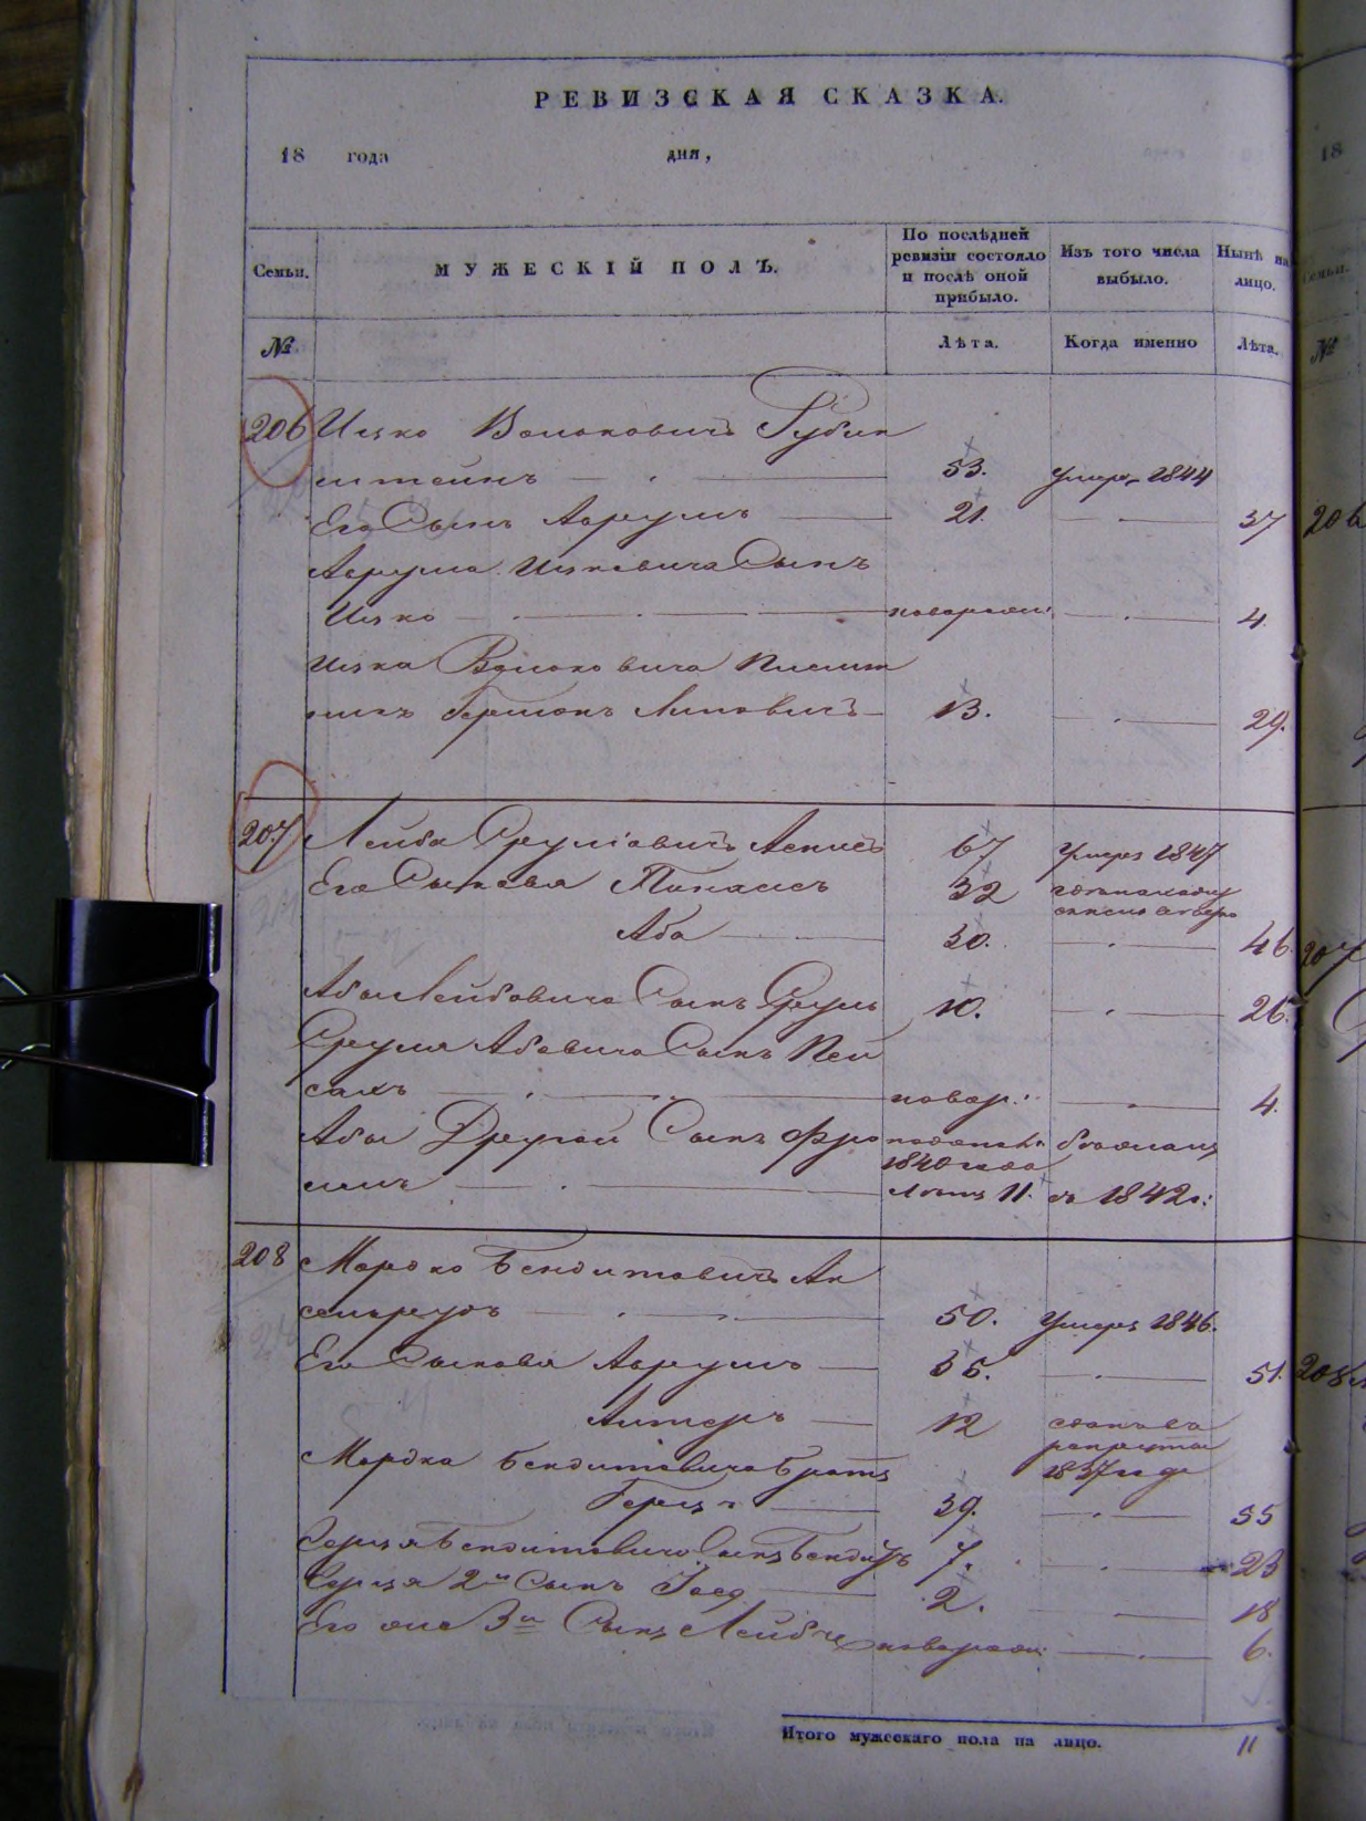 РЕВИЗСКАЯ СКАЗКА.
18 года дня,
Семьи. МУЖЕСКІЙ ПОЛЪ. По послѣдней ревизіи состояло и послѣ оной прибыло. Изъ того числа выбыло. Нынѣ на лицо.
№ Лѣта. Когда именно Лѣта.
206 Ицко Волковичъ Рубин
штейнъ 53. умеръ 1844
Его Сынъ Аврумъ 21. 37
Аврума Ицковича Сынъ
Ицко новорожд: 4.
Ицка Волковича Племян
никъ Гершонъ 13. 29.
207 Лейба Сруліовичъ 67 умеръ 1847
Его Сыновья Пинхасъ 32
Аба 30. 46.
Абы Лейбовича Сынъ Сруль 10. 26.
Сруля Абовича Сынъ Пей
сахъ новор: 4.
Абы Другой Сынъ Фро
1840 года
имъ Лѣтъ 11. въ 1842г:
208 Мордко Бендитовичъ Ак
сельрудъ 50. умеръ 1846.
Его Сыновья Аврумъ 35. 51.
Алтеръ 12 сданъ въ
рекруты
Мордка Бендитовича братъ 1837 года
Герцъ 39. 55
Герця Бендитовича Сынъ Бендитъ 7. 23
Герця 2й Сынъ 2. 18
Его же 3й Сынъ Лейба новорожд: 6.
Итого мужескаго пола на лицо. 11
18
№
206
207
208